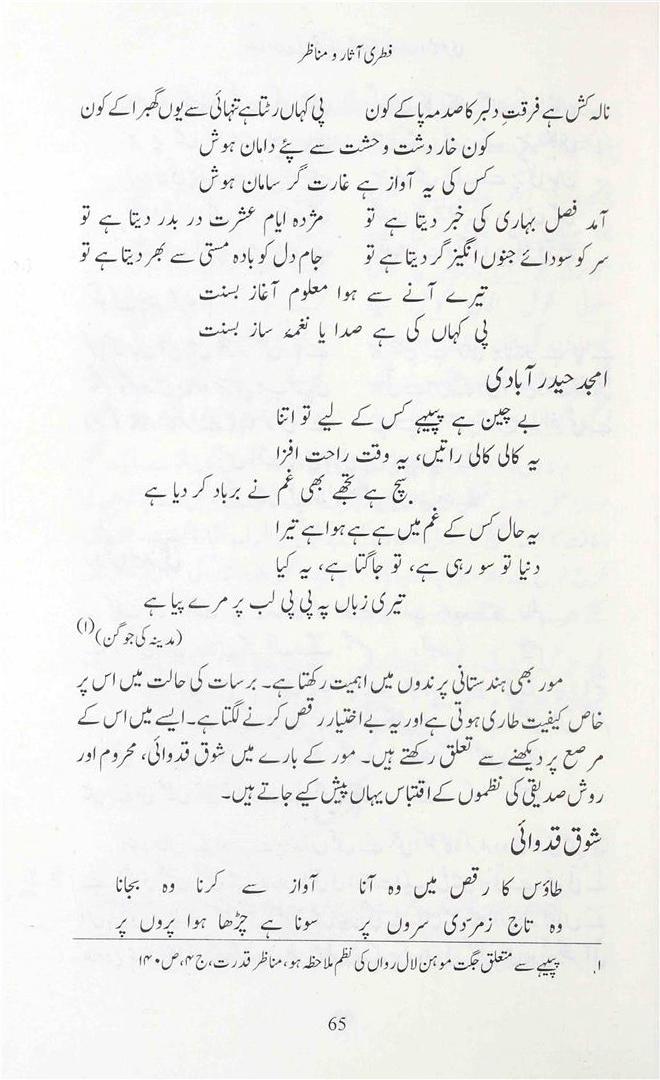 فطری آثار و مناظر
نالہ کش ہے فرقتِ دلبر کا صدمہ پا کے کون پی کہاں رٹتا ہے تنہائی سے یوں گھبرا کے کون
کون خار دشت وحشت سے پئے دامان ہوش
کس کی یہ آواز ہے غارت گر سامان ہوش
آمد فصل بہاری کی خبر دیتا ہے تو مژدہ ایام عشرت در بدر دیتا ہے تو
سر کو سودائے جنوں انگیز گر دیتا ہے تو جام دل کو بادہ مستی سے بھر دیتا ہے تو
تیرے آنے سے ہوا معلوم آغاز بسنت
پی کہاں کی ہے صدا یا نغمۂ ساز بسنت
امجد حیدر آبادی
بے چین ہے پپیہے کس کے لیے تو اتنا
یہ کالی کالی راتیں، یہ وقت راحت افزا
سچ ہے تجھے بھی غم نے برباد کر دیا ہے
یہ حال کس کے غم میں ہے ہے ہوا ہے تیرا
دنیا تو سو رہی ہے، تو جاگتا ہے، یہ کیا
تیری زباں پہ پی پی لب پر مرے پیا ہے
(مدینہ کی جوگن)(۱)
مور بھی ہندستانی پرندوں میں اہمیت رکھتا ہے۔ برسات کی حالت میں اس پر
خاص کیفیت طاری ہوتی ہے اور یہ بے اختیار رقص کرنے لگتا ہے۔ ایسے میں اس کے
مرصع پر دیکھنے سے تعلق رکھتے ہیں۔ مور کے بارے میں شوق قدوائی، محروم اور
روش صدیقی کی نظموں کے اقتباس یہاں پیش کیے جاتے ہیں۔
شوق قدوائی
طاؤس کا رقص میں وہ آنا آواز سے کرنا وہ بجانا
وہ تاج زمرّدی سروں پر سونا ہے چڑھا ہوا پروں پر
۱۔ پپیہے سے متعلق جگت موہن لال رواں کی نظم ملاحظہ ہو، مناظر قدرت، ج ۴، ص ۱۴۰
65